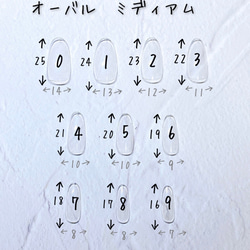 オーバル ミディアム
25 0 24 1 23 2 22 3
14 13 12 11
21 4 20 5 19 6
10 10 9
18 7 17 8 16 9
8 8 7